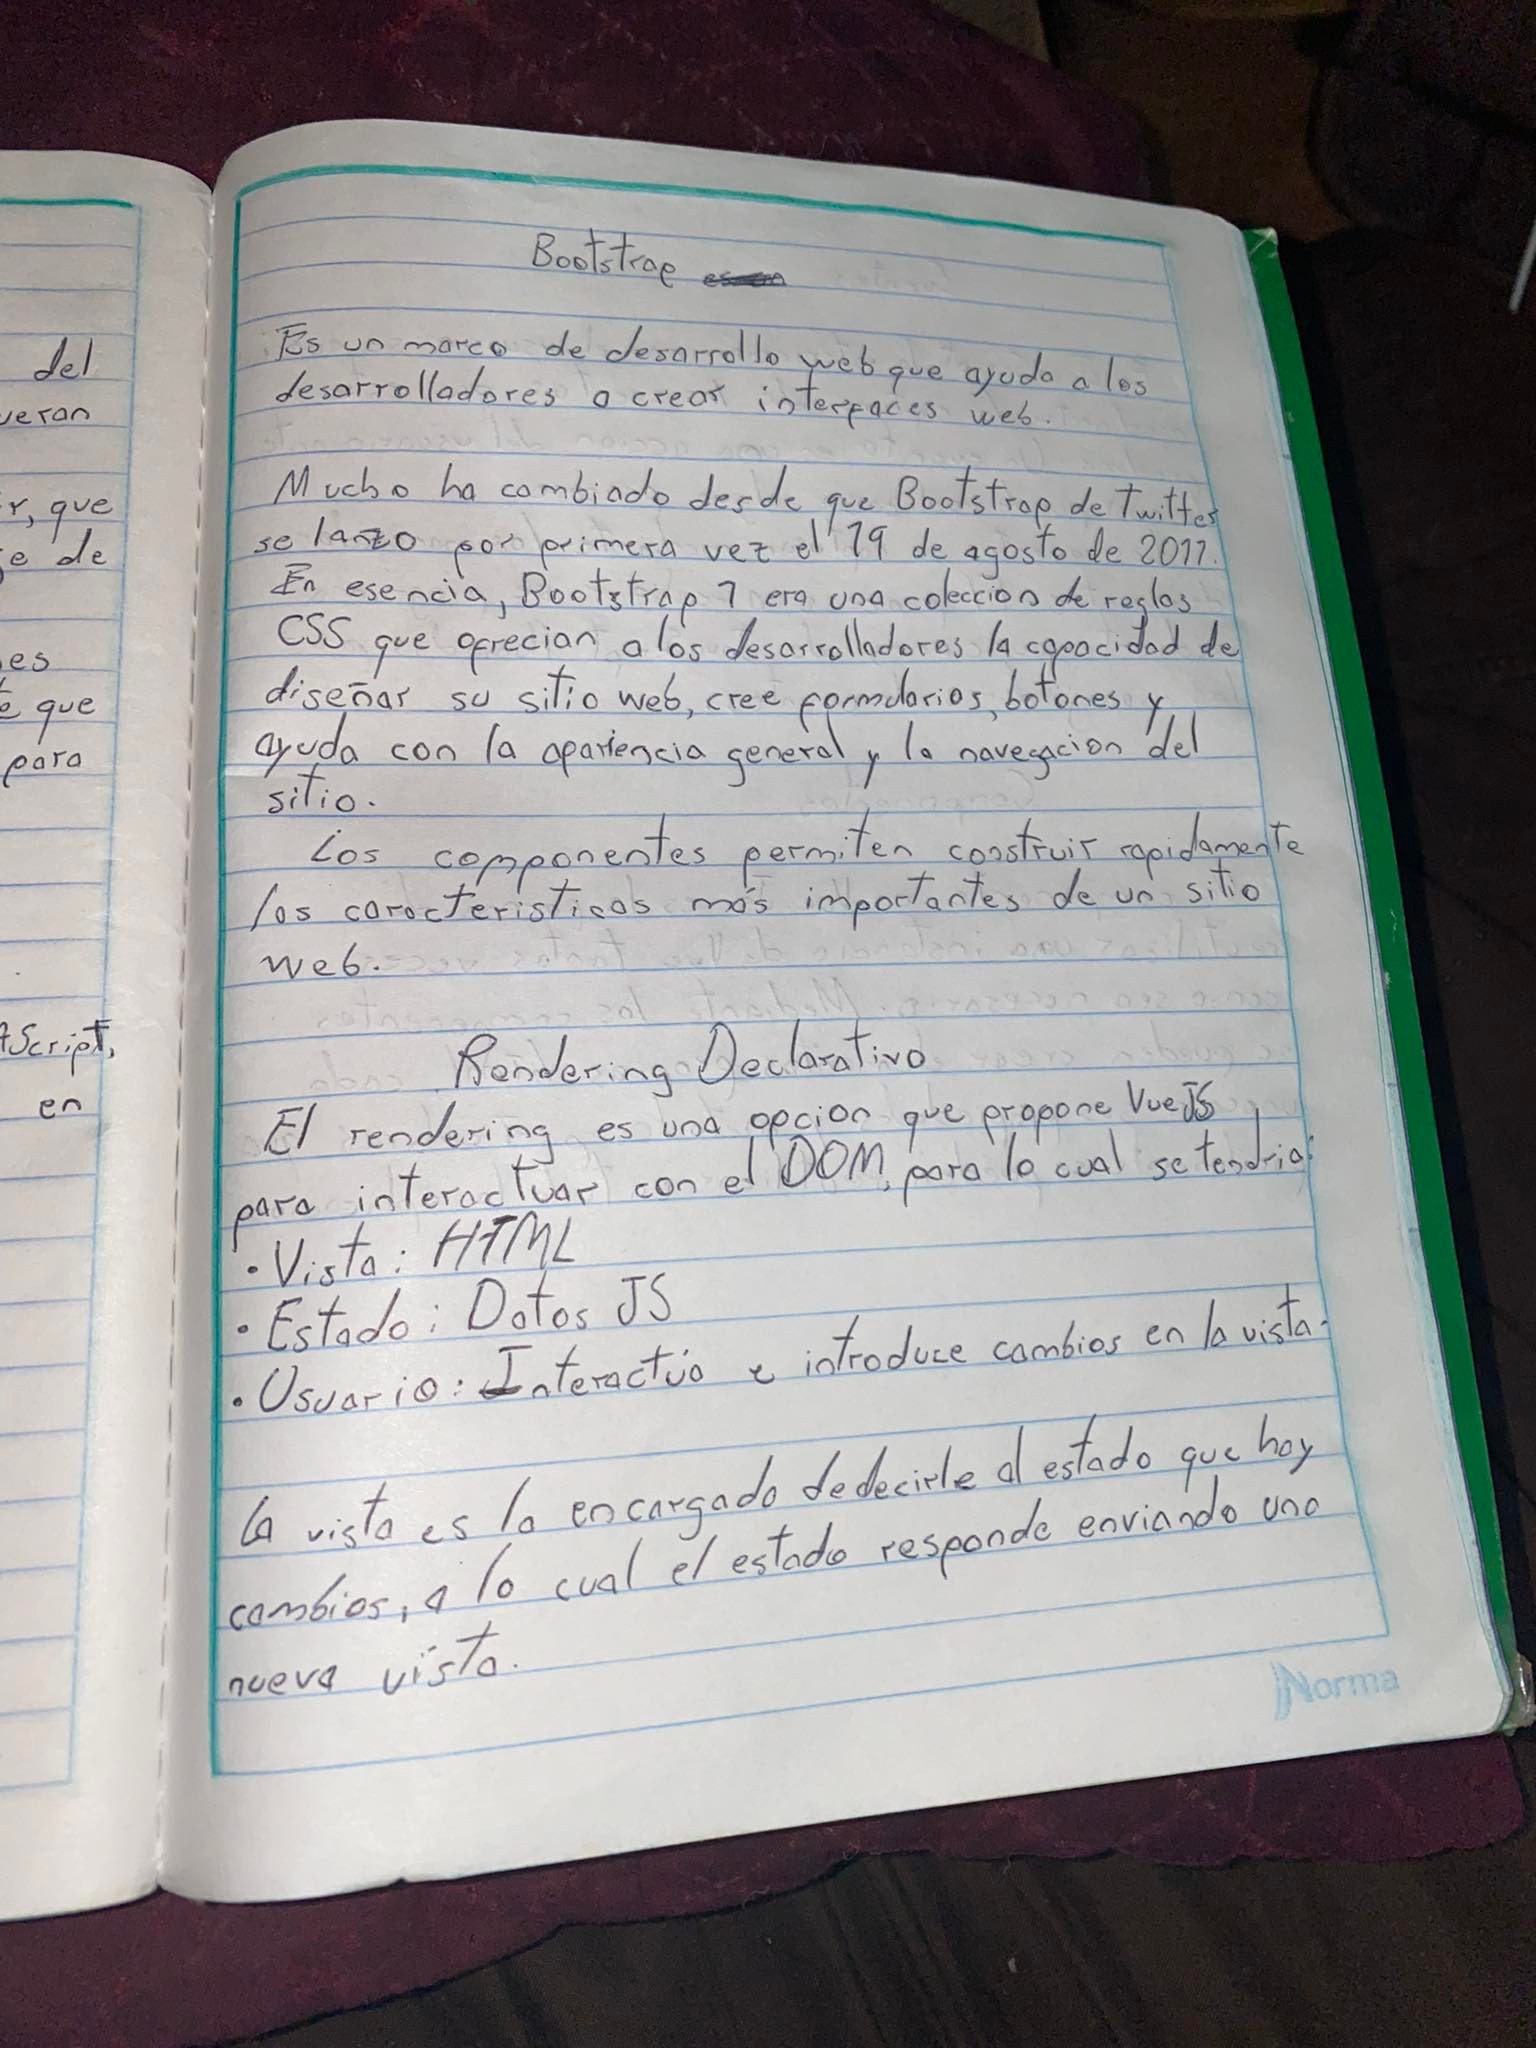 del
ueran
r, que
e de
es
e que
para
Script,
en
Bootstrap
Es un marco de desarrollo web que ayuda a los
desarrolladores a crear interfaces web.
Mucho ha cambiado desde que Bootstrap de Twitter
se lanzo por primera vez el 19 de agosto de 2011.
En esencia, Bootstrap 1 era una coleccion de reglas
CSS que ofrecian a los desarrolladores la capacidad de
diseñar su sitio web, cree formularios, botones y
ayuda con la apariencia general y la navegacion del
sitio.
Los componentes permiten construir rapidamente
las caracteristicas más importantes de un sitio
web.
Rendering Declarativo
El rendering es una opcion que propone VueJS
para interactuar con el DOM, para lo cual se tendria:
• Vista: HTML
• Estado: Datos JS
• Usuario: Interactúa e introduce cambios en la vista.
La vista es la encargada de decirle al estado que hay
cambios, a lo cual el estado responde enviando una
nueva vista.
Norma